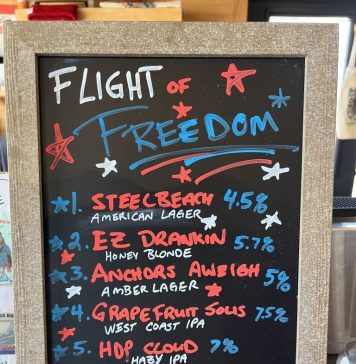 FLIGHT OF
FREEDOM
1. STEELBEACH 4.5%
AMERICAN LAGER
2. EZ DRANKIN 5.7%
HONEY BLONDE
3. ANCHORS AWEIGH 5%
AMBER LAGER
4. GRAPEFRUIT SOLIS 7.5%
WEST COAST IPA
5. HOP CLOUD 7%
HAZY IPA